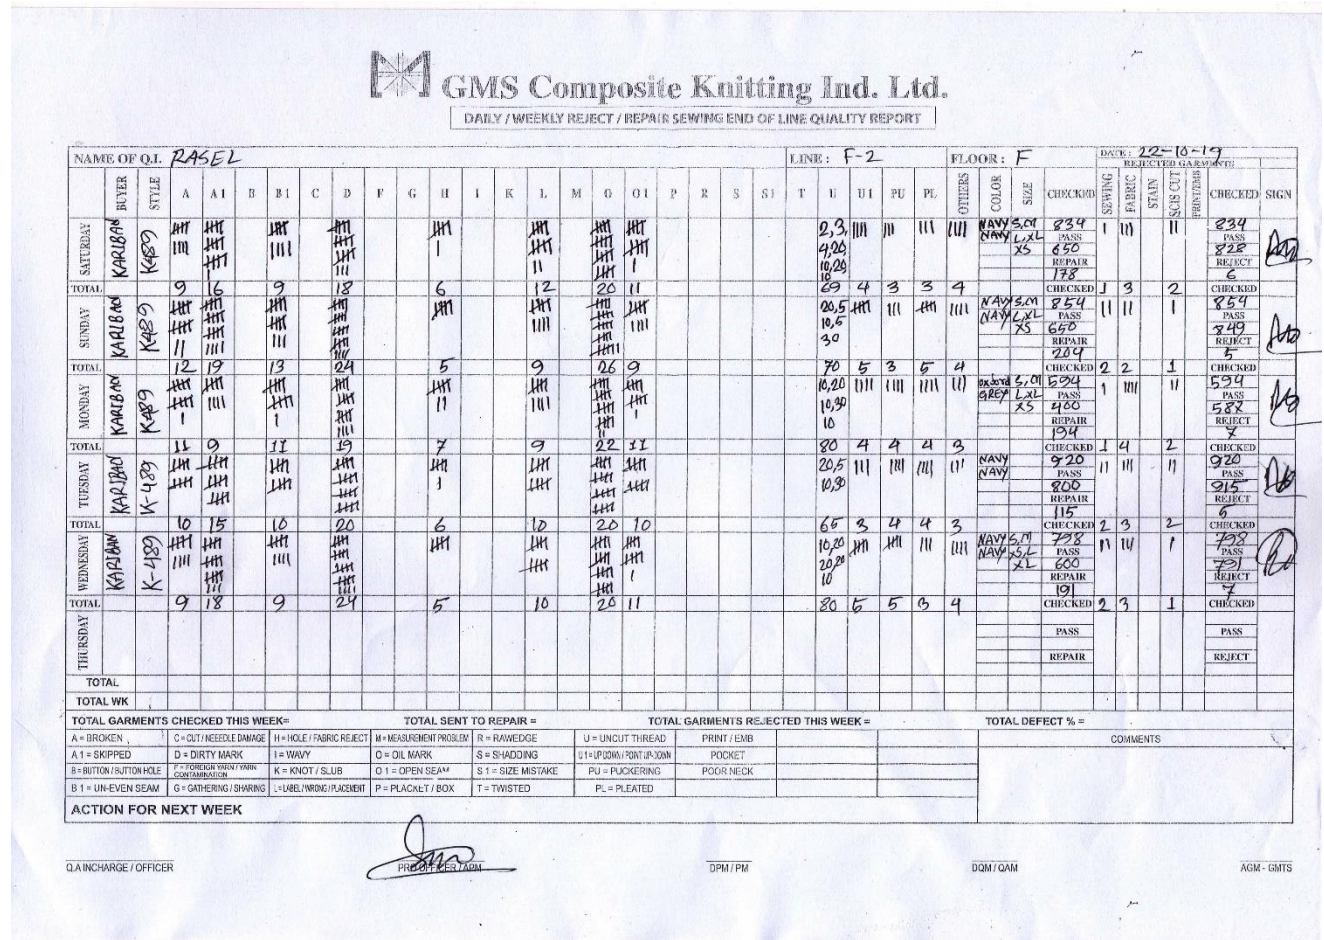 GMS Composite Knitting Ind. Ltd.
DAILY / WEEKLY REJECT / REPAIR SEWING END OF LINE QUALITY REPORT
NAME OF Q.I. RASEL LINE: F-2 FLOOR: F DATE: 22-10-19
REJECTED GARMENTS
BUYER STYLE A A1 B B1 C D F G H I K L M O O1 P R S S1 T U U1 PU PL OTHERS COLOR SIZE CHECKED SEWING FABRIC STAIN SCIS CUT PRINT/EMB CHECKED SIGN
SATURDAY KARIBAN K489 2,3, NAVY S,M 834 834
4,20 NAVY L,XL PASS PASS
10,20 XS 650 828
10 REPAIR REJECT
178 6
TOTAL 9 16 9 18 6 12 20 11 69 4 3 3 4 CHECKED 1 3 2 CHECKED
SUNDAY KARIBAN K489 20,5 NAVY S,M 854 854
10,5 NAVY L,XL PASS PASS
30 XS 650 849
REPAIR REJECT
204 5
TOTAL 12 19 13 24 5 9 26 9 70 5 3 5 4 CHECKED 2 2 1 CHECKED
MONDAY KARIBAN K489 10,20 oxford S,M 594 594
10,30 GREY L,XL PASS PASS
10 XS 400 587
REPAIR REJECT
194 7
TOTAL 11 9 11 19 7 9 22 11 80 4 4 4 3 CHECKED 1 4 2 CHECKED
TUESDAY KARIBAN K-489 20,5 NAVY 920 920
10,30 NAVY PASS PASS
800 915
REPAIR REJECT
115 5
TOTAL 10 15 10 20 6 10 20 10 65 3 4 4 3 CHECKED 2 3 2 CHECKED
WEDNESDAY KARIBAN K-489 10,20 NAVY S,M 798 798
20,20 NAVY XS,L PASS PASS
10 XL 600 791
REPAIR REJECT
191 7
TOTAL 9 18 9 24 5 10 20 11 80 5 5 3 4 CHECKED 2 3 1 CHECKED
THURSDAY
PASS PASS
REPAIR REJECT
TOTAL
TOTAL WK
TOTAL GARMENTS CHECKED THIS WEEK= TOTAL SENT TO REPAIR = TOTAL GARMENTS REJECTED THIS WEEK = TOTAL DEFECT % =
A = BROKEN C = CUT / NEEEDLE DAMAGE H = HOLE / FABRIC REJECT M = MEASUREMENT PROBLEM R = RAWEDGE U = UNCUT THREAD PRINT / EMB COMMENTS
A 1 = SKIPPED D = DIRTY MARK I = WAVY O = OIL MARK S = SHADDING U 1 = UP DOWN / POINT UP-DOWN POCKET
B = BUTTON / BUTTON HOLE F = FOREIGN YARN / YARN CONTAMINATION K = KNOT / SLUB O 1 = OPEN SEAM S 1 = SIZE MISTAKE PU = PUCKERING POOR NECK
B 1 = UN-EVEN SEAM G = GATHERING / SHARING L = LABEL / WRONG / PLACEMENT P = PLACKET / BOX T = TWISTED PL = PLEATED
ACTION FOR NEXT WEEK
Q.A INCHARGE / OFFICER PRO OFFICER / APM DPM / PM DQM / QAM AGM - GMTS